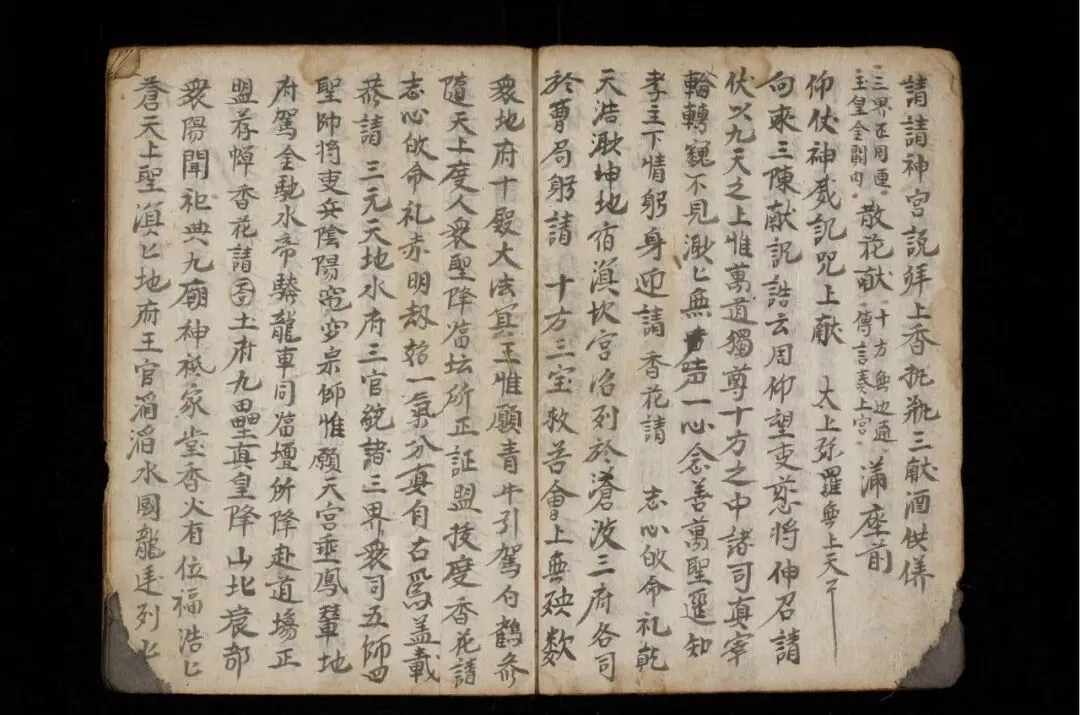 請請神宮說拜上香托瓶三献酒供俻
三界正周通 散花献 十方無边通 蒲座前
玉皇金闕內 傳言奏上宮
仰伏神威訳咒上献 太上弥羅無上天
向來三陳献訳誥云周仰望吏慈將伸召請
伏以九天之上惟萬道獨尊十方之中諸司真宰
輪轉窺不見渺匕無声一心念善萬聖遥知
孝主下情躬身迎請 香花請 志心皈命礼乾
天浩渺坤地宿滇坎宮沼列於滄波三府各司
於曹局躬請 十方三宝救苦會上無殃数
衆地府十殿大法冥王惟願青牛引駕白鶴參
隨天上度人衆聖降临坛所正証盟接度香花請
志心皈命礼赤明刼始一氣分真有右為盖載
恭請 三元天地水府三官統諸三界衆司五師四
聖帅將吏兵陰陽師宗師惟願天宮垂鳳輦地
府駕金馳水帝驂龍車同临壇所降赴道塲正
盟荐悼香花請 土府九壘真皇降山北㐮部
衆陽聞祀典九廟神祇家堂香火有位福浩匕
蒼天上聖滇匕地府王官滔滔水國龍逹列匕